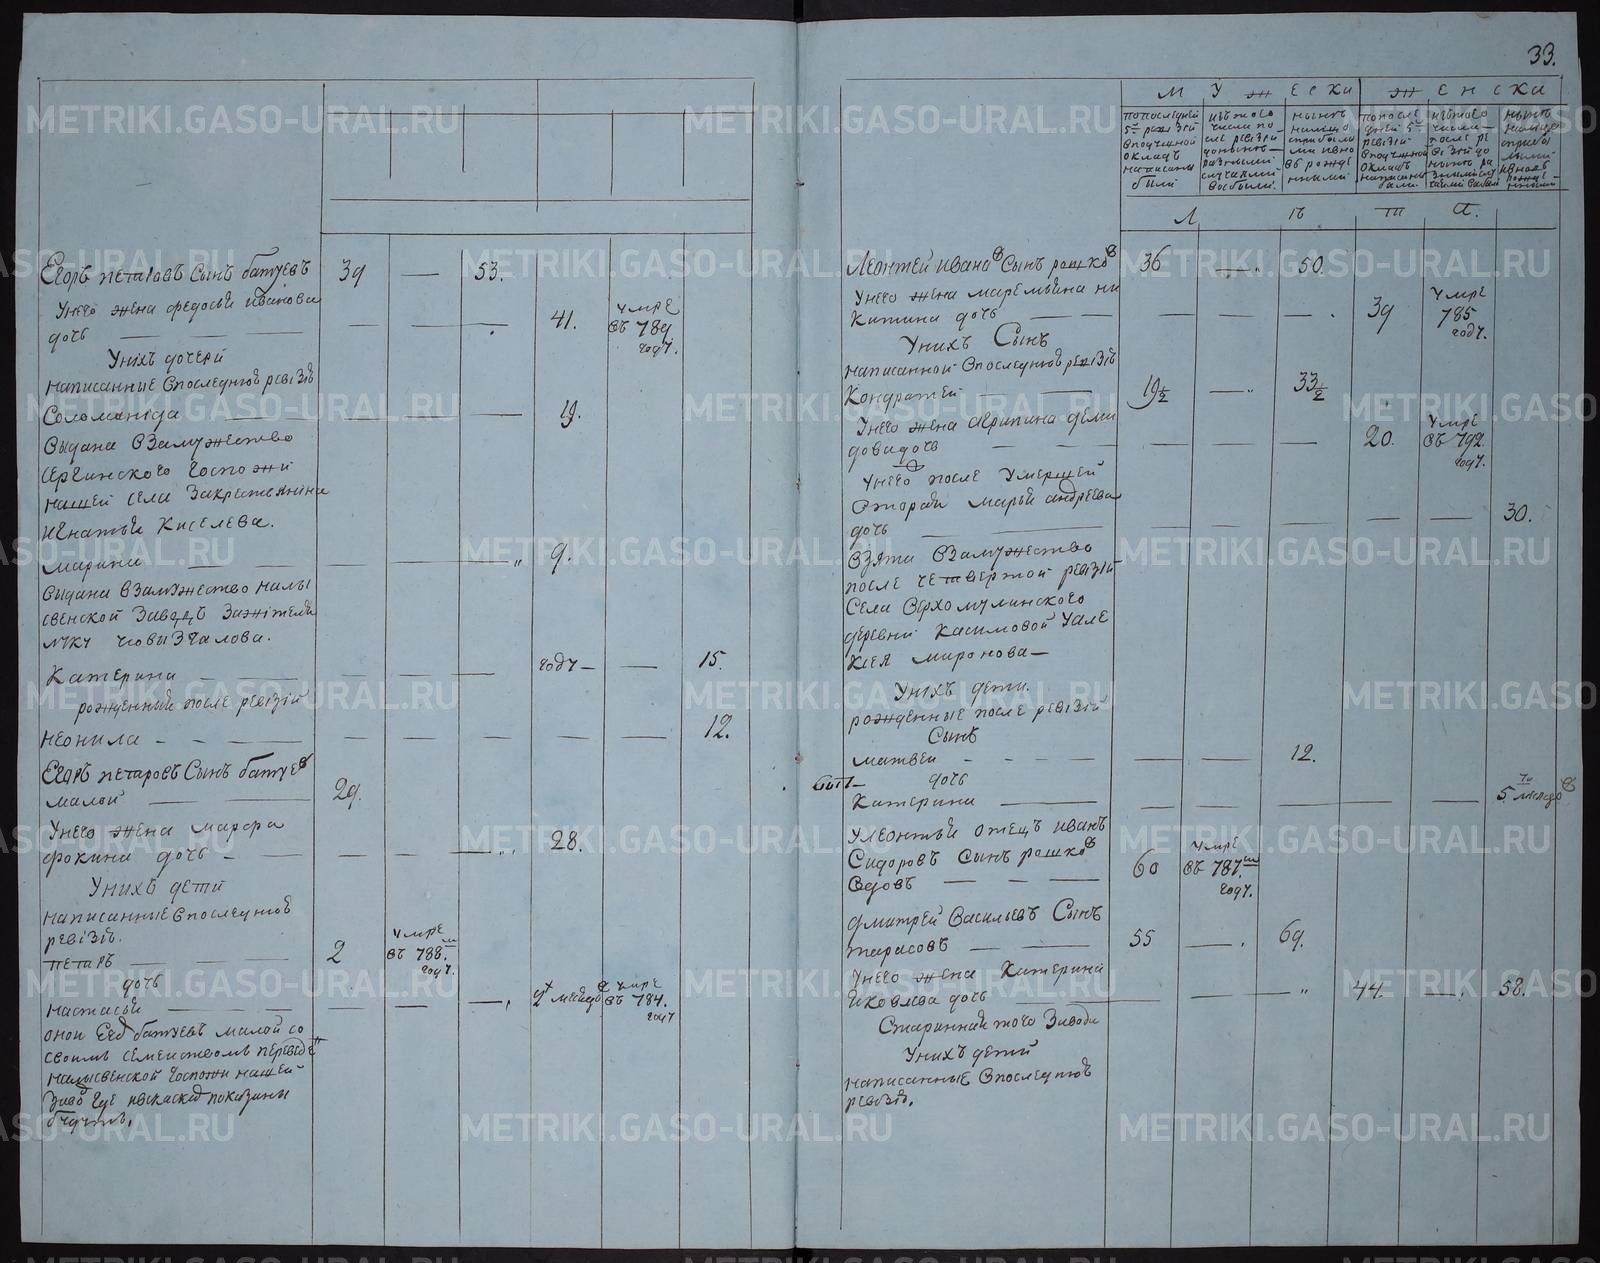 Егоръ петаровъ Сынъ батуевъ 39 — 53.
Унего жена федосьи иванова
дочь — — — — 41. умре въ 789 году.
Унихъ дочери
написанные впоследнюю ревiзiю
Соломанiда — — — — 19.
выдана взамужество
сергинского госпожи
нашей села закрестьянина
игнатьи Киселева.
марина — — — — 9.
выдана взамужество налы
свенской заводъ зажителя
луку
Катерина — — — — году — — 15.
рожденныи после ревiзiи
неонила — — — — — — 12.
Егоръ петаровъ Сынъ батуев
малой — 29.
Унего жена марфа
фокина дочь — — — — 28.
Унихъ дети
написанные впоследнюю
ревiзiю.
петаръ — 2 умре въ 788м году.
дочь
настасьи — — — — 2х месяцов умре въ 784. году
оной Егор батуевъ малой со
своимъ семействомъ переведен
налысвенской госпожи нашей
завод где ивскаски показаны
будутъ.
33.
МУЖЕСКА ЖЕНСКА
попоследней 5й ревизiи вподушной окладъ написаны были
изтого числа после ревизiи доныне разными случаями выбыли.
ныне налицо сприбылыми ивновь рожденными
попоследней 5й ревизiи вподушной окладъ написаны были
изтого числа после ревизiи доныне разными случаями выбыли
ныне налицо сприбылыми ивновь рожденными
Л ѣ т а.
Леонтей иванов Сынъ рошков 36 — 50.
Унего жена маремьяна ни
китина дочь — — — — 39 умре 785 году.
Унихъ Сынъ
написанной впоследнюю ревiзiю
Кондратей — 19½ — 33½
Унего жена агрипина деми
довадочь — — — — 20. умре въ 792. году.
Унего после умершей
вторая марьи андреева
дочь — — — — — — 30.
взята взамужество
после четвертой ревiзiи
села верхомулинского
деревни Касимовой уале
ксея миронова —
Унихъ дети.
рожденные после ревiзiи
Сынъ
матвеи — — — — 12.
дочь
Катерина — — — — — — 5ти месяцов
Улеонтьи отецъ иванъ
Сидоровъ Сынъ рошков
вдовъ — 60 умре въ 787м году.
дмитрей Васильевъ Сынъ
тарасовъ — 55 — 69.
Унего жена Катерина
Яковлева дочь — — — — 44. — 58.
Стариннаи того завода
Унихъ дети
написанные впоследнюю
ревiзiю.
METRIKI.GASO-URAL.RU